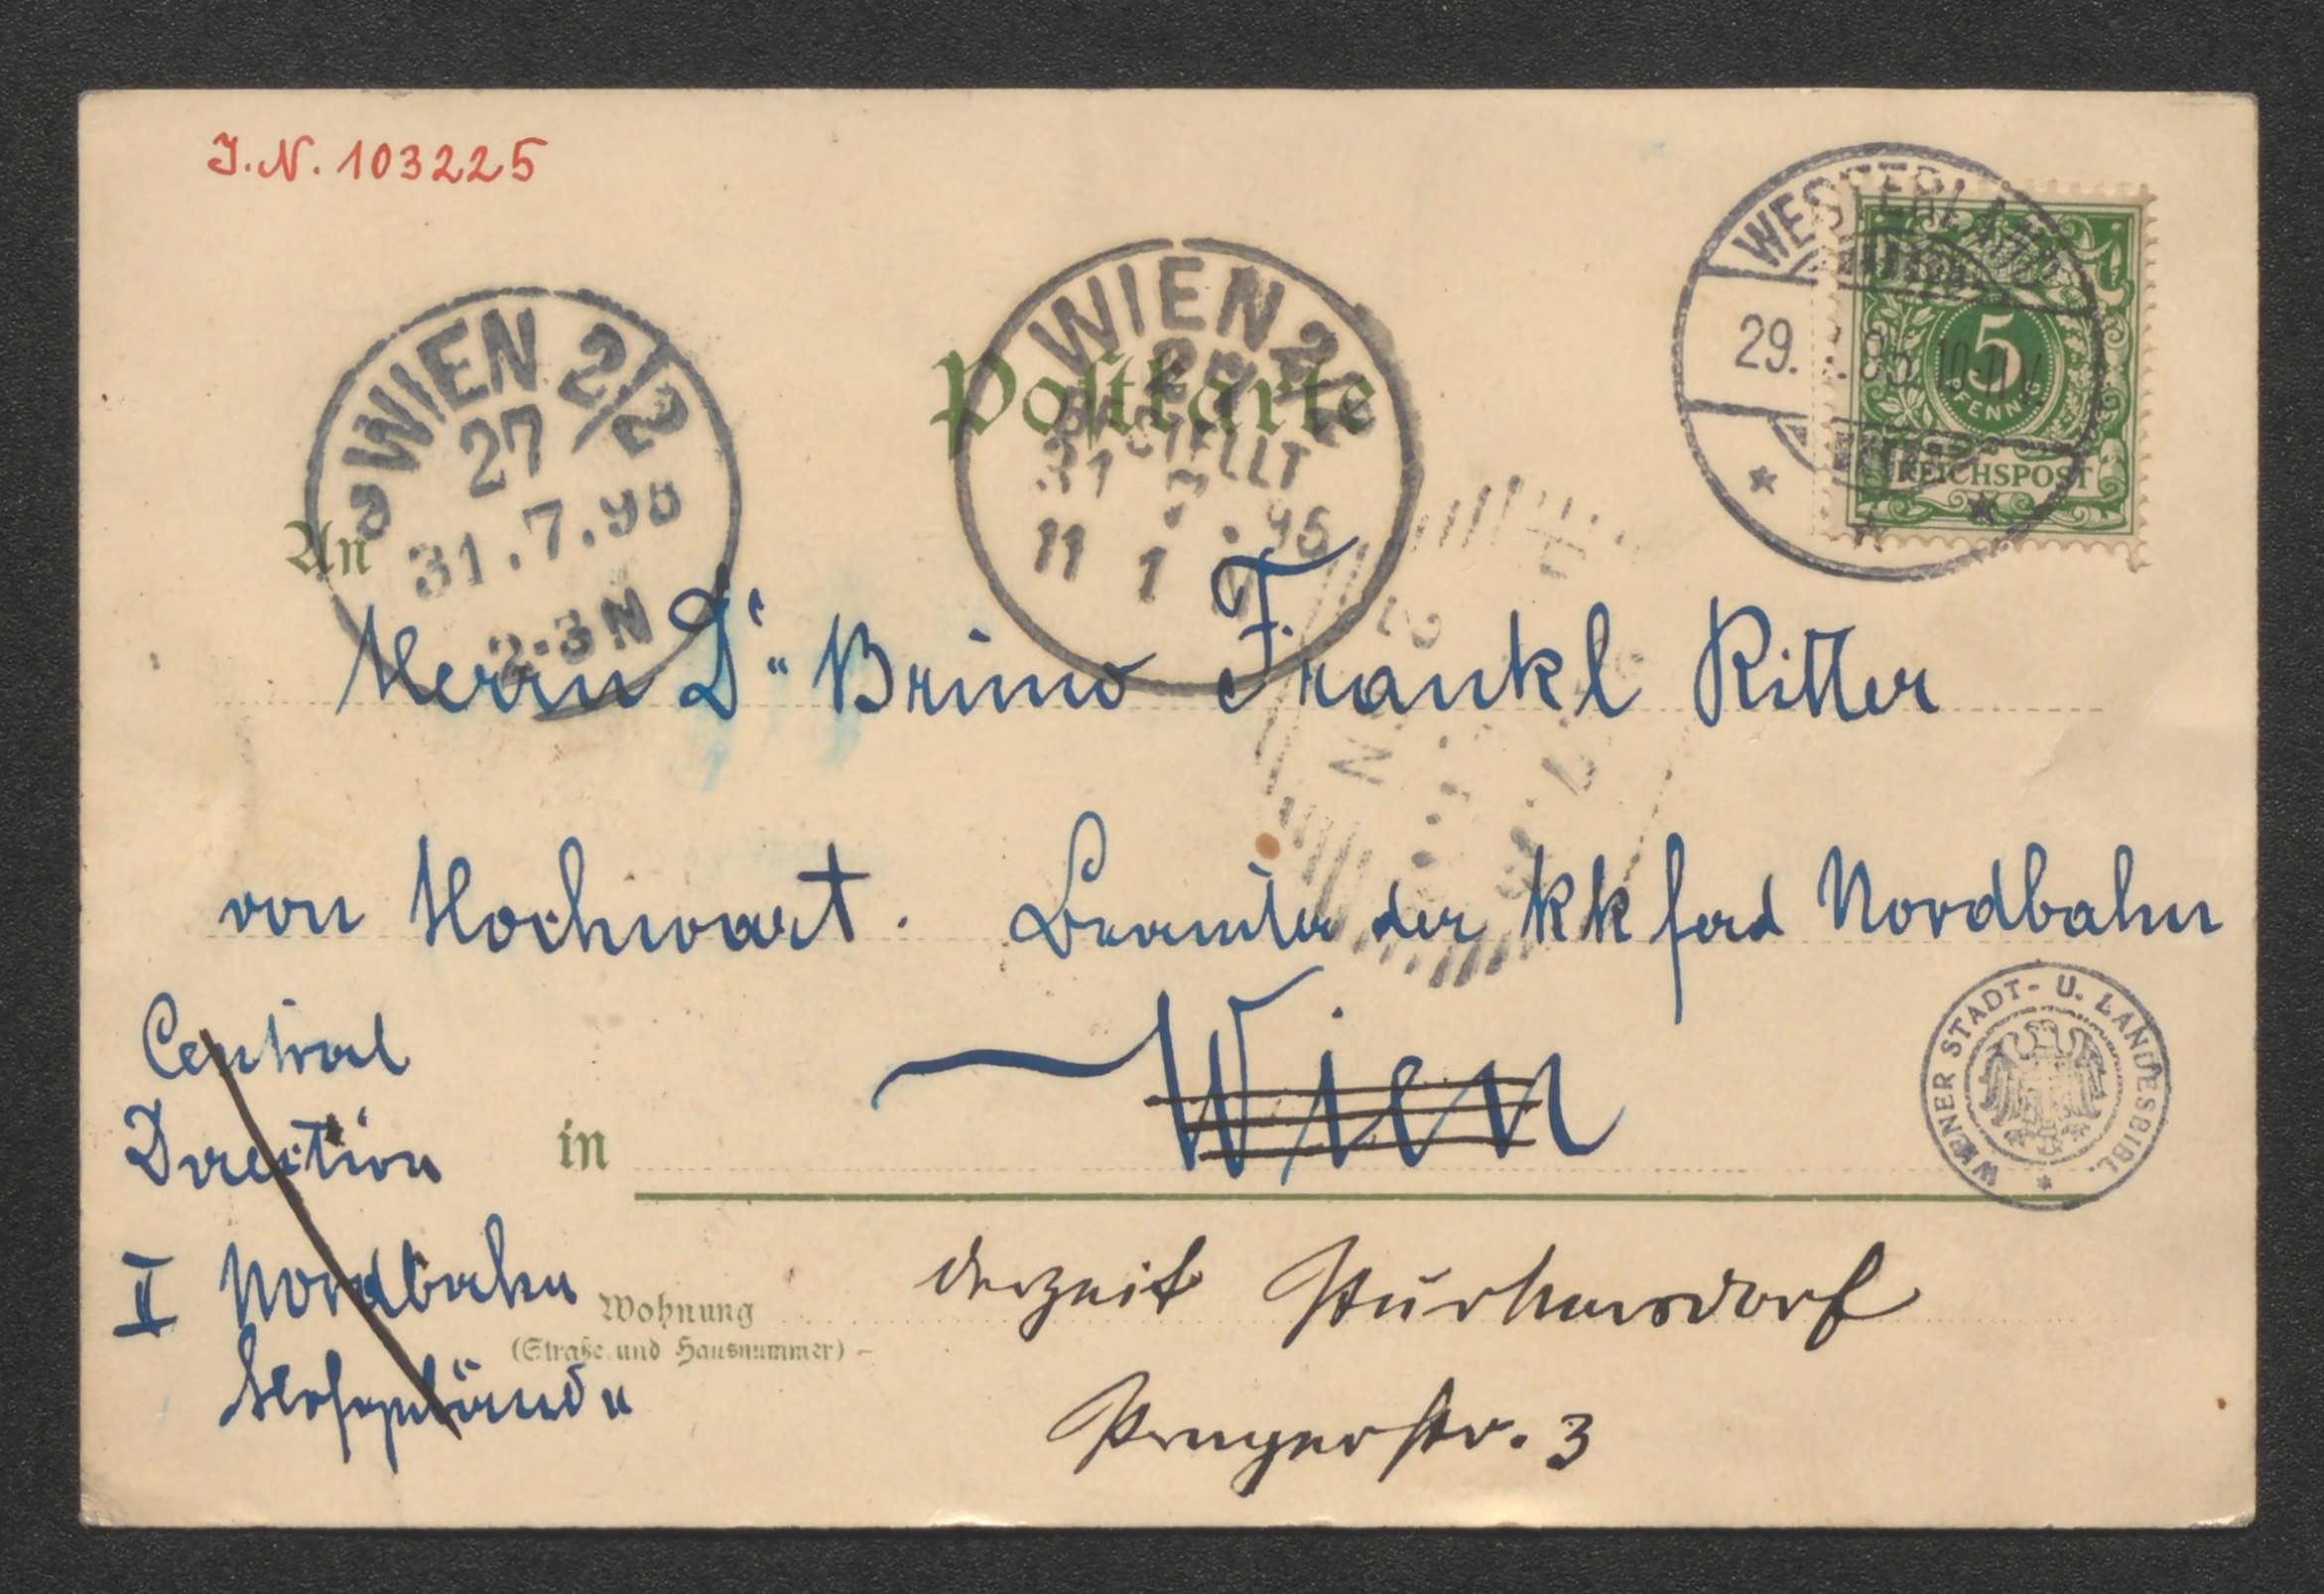 J.N. 103225
WESTERLAND
29. 7. 95. 10-11 V.
5
PFENNIG
REICHSPOST
WIEN 2/2
27
31.7.95
2-3N
WIEN 2
BESTELLT
31 7.95
11 1
Postkarte
An
Herrn Dr Bruno Frankl Ritter
von Hochwart. Beamter der kk ferd Nordbahn
Central
Direction
in Wien
WIENER STADT- U. LANDESBIBL.
II Nordbahn
Hofgebäude
Wohnung
(Straße und Hausnummer) –
derzeit Purkersdorf
3